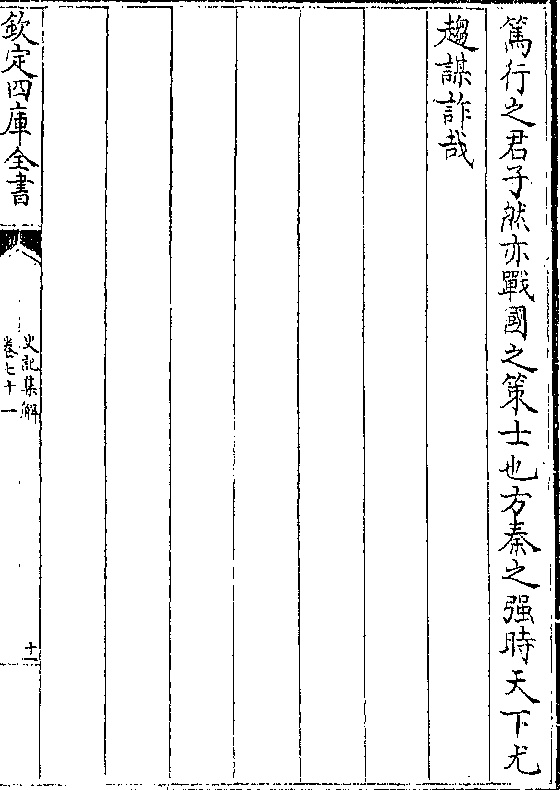 篤行之君子然亦戰國之策士也方秦之强時天下尤
趨謀詐哉
欽定四庫全書
史記集解
卷七十一
十一